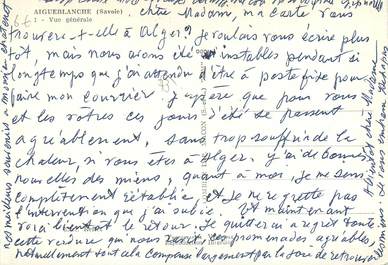 AIGUEBLANCHE (Savoie)
1 - Vue générale
chère Madame, ma carte vous
trouvera-t-elle à Alger? Je voulais vous écrire plus
tôt, mais nous avons été instables pendant si
longtemps que j'ai attendu d'être à poste fixe pour
faire mon courrier. J'espère que pour vous
et les vôtres ces jours d'été se passent
agréablement, sans trop souffrir de la
chaleur, si vous êtes à Alger. J'ai de bonnes
nouvelles des miens, quant à moi, je me sens
complètement rétablie, et je ne regrette pas
l'intervention que j'ai subie. Et maintenant
voici bientôt le retour. Je quitterai à regret toute
cette verdure qui nous promenades agréables,
naturellement tout cela compensé largement par la joie de retrouver
A bientôt chère Madame